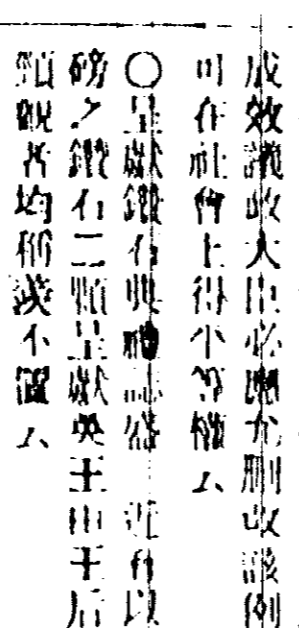 成效議政大臣必應允刪改該例
可在社會上得平等權云
○呈獻鑽石典禮誌盛 近有以
磅之鑽石二顆呈獻英王由王后
頭觀者均稱羨不置云